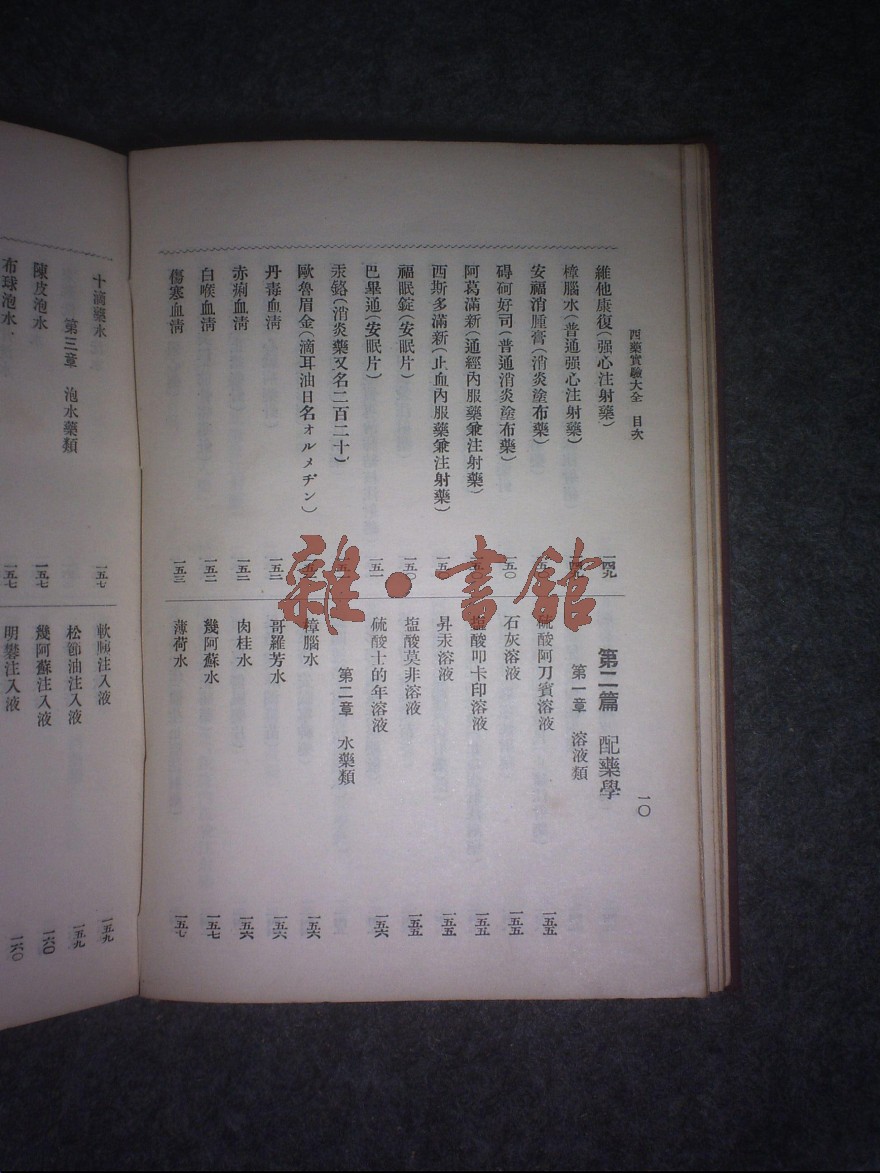 西藥實驗大全 目次
一〇
維他康復(强心注射藥) 一四九
樟腦水(普通强心注射藥) 一四九
安福消腫膏(消炎塗布藥)
碍硐好司(普通消炎塗布藥) 一五〇
阿葛滿新(通經內服藥兼注射藥) 一五〇
西斯多滿新(止血內服藥兼注射藥)
福眠錠(安眠片) 一五〇
巴畢通(安眠片) 一五一
汞鉻(消炎藥又名二百二十)
歐魯眉金(滴耳油日名オルメヂン)
丹毒血清 一五二
赤痢血清 一五二
白喉血清 一五二
傷寒血清 一五三
第二篇 配藥學
第一章 溶液類
硫酸阿刀賓溶液 一五五
石灰溶液 一五五
塩酸叩卡印溶液 一五五
昇汞溶液 一五五
塩酸莫非溶液 一五五
硫酸士的年溶液 一五六
第二章 水藥類
樟腦水 一五六
哥羅芳水 一五六
肉桂水 一五六
幾阿蘇水 一五七
薄荷水 一五七
十滴藥水 一五七
第三章 泡水藥類
陳皮泡水 一五七
布球泡水 一五七
軟膓注入液 一五九
松節油注入液 一五九
幾阿蘇注入液 一六〇
明礬注入液 一六〇
雜·書館